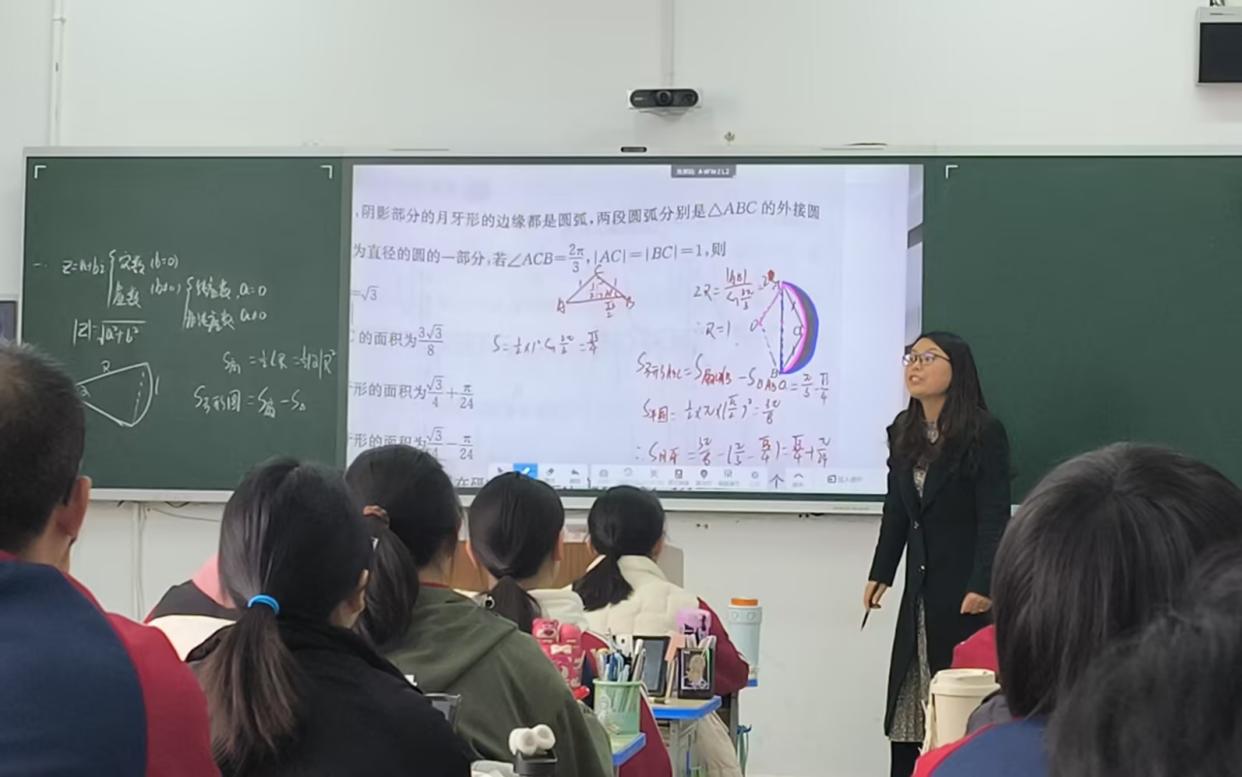 z=a+bi { 实数 (b=0)
虚数 (b≠0) { 纯虚数 a=0
非纯虚数 a≠0
|z|=√a²+b²
R
l
S扇 = ½lR = ½|α|R²
S弓形圆 = S扇 - S△
,阴影部分的月牙形的边缘都是圆弧,两段圆弧分别是△ABC的外接圆
为直径的圆的一部分,若∠ACB=2π/3,|AC|=|BC|=1,则
=√3
的面积为3√3/8
形的面积为√3/4+π/24
形的面积为√3/4-π/24
C
A
B
S=½×1²·sin2π/3=√3/4
2R=|AB|/sin2π/3=2
∴R=1
S弓形ABC=S扇OAB-S△ABO=π/3-√3/4
S半圆=½×π×(√3/2)²=3π/8
∴S月牙=3π/8-(π/3-√3/4)=√3/4+π/24